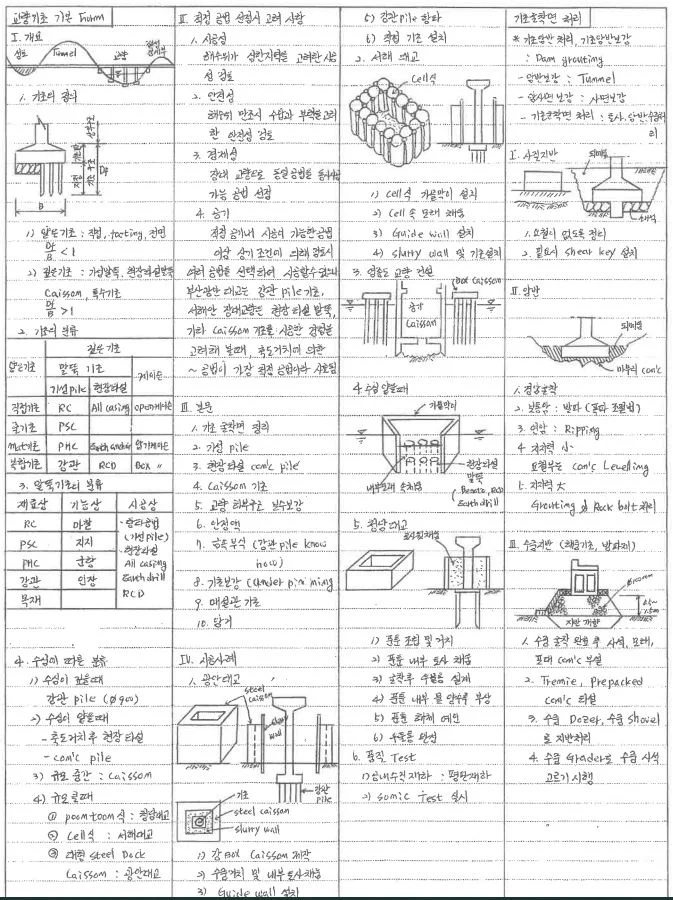 교량기초 기본 Form
I. 개요
성토
Tunnel
교량
1. 기초의 정의
Df
B
1) 얕은기초 : 직접, footing, 전면
Df/B < 1
2) 깊은기초 : 기성말뚝, 현장타설말뚝
Caisson, 특수기초
Df/B > 1
2. 기초의 분류
얕은기초
깊은기초
말뚝 기초
케이슨
기성pile
현장타설
직접기초 RC All casing open케이슨
복합기초 강관 RCD Box "
PSC
PHC Earth drill 공기케이슨
3. 말뚝기초의 분류
재료상 기능상 시공상
RC 마찰 타입공법
PSC 지지 (기성pile)
PHC 다짐 현장타설
강관 인장 All casing
목재 Earth drill
RCD
4. 수심에 따른 분류
1) 수심이 깊을때
강관 pile
2) 수심이 얕을때
- 축도거치후 현장타설
- con'c pile
3) 규모 중간 : Caisson
4) 규모 클때
② Cell식 : 서해대교
③ 대형 steel Dock
Caisson : 광안대교
II. 적정 공법 선정시 고려 사항
1. 시공성
해수위가 심한지역을 고려한 시공
성 검토
2. 안전성
해수위 만조시 수압과 부력을고려
한 안전성 검토
3. 경제성
장대 교량으로 동일공법을
가능 공법 선정
4. 공기
적정 공기내 시공이 가능한공법
이상 상기 조건에 의해 검토시
여러 공법을 선택하여 시공할수 있으나
부산광안 대교는 강관 pile기초,
서해안 장대교량은 현장 타설 말뚝,
기타 Caisson 기초를 시공한 경험을
고려해 볼때, 축도거치에 의한
~ 공법이 가장 적정 공법이라 사료됨
III. 본론
1. 기초 굴착면 정리
2. 기성 pile
3. 현장타설 con'c pile
4. Caisson 기초
5. 교량 하부구조 보수보강
6. 안정액
7. 강관부식 (강관 pile know
how)
8. 기초보강 (Under pinning)
9. 매설관 기초
10. 닻기
IV. 시공사례
1. 광안대교
steel caisson
slurry wall
강관 pile
기초
steel caisson
slurry wall
1) 강 Box Caisson 제작
2) 수중거치 및 내부 토사채움
3) Guide wall 설치
5) 강관pile 항타
6) 직접 기초 설치
2. 서해 대교
Cell식
1) cell식 가물막이 설치
2) Cell 속 모래 채움
3) Guide wall 설치
4) slurry wall 및 기초설치
3. 영종도 교량 건설
Box Caisson
공기
Caisson
4. 수심 얕을때
가물막이
내부모래 속채움
현장타설
말뚝
(Benoto, RCD
Earth drill)
5. 청담대교
1) 푼툰 조립 및 거치
2) 푼툰 내부 토사 채움
3) 굴착후 우물통 설치
4) 푼툰 내부 물 양수후 부상
5) 푼툰 해체 예인
6) 우물통 완성
6. 품질 Test
1) 공내수직재하 : 평판재하
2) Sonic Test 실시
기초굴착면 처리
* 기초암반 처리, 기초암반보강
: Dam grouting
- 암반보강 : Tunnel
- 암사면 보강 : 사면보강
- 기초굴착면 처리 : 토사.암반.수중처
리
I. 사질지반
되메움
1. 요철이 없도록 정리
2. 필요시 shear key 설치
II. 암반
되메움
마무리 con'c
1. 경암굴착
2. 보통암 : 발파
3. 연암 : Ripping
4. 지지력 小
요철부는 con'c Levelling
5. 지지력 大
Grouting 및 Rock bolt처리
III. 수중지반
지반 개량
1. 수중 굴착 완료 후 사석, 모래,
포대 con'c 부설
2. Tremie, prepacked
con'c 타설
3. 수중 Dozer, 수중 shovel
로 지반처리
4. 수중 Grader로 수중 사석
고르기 시행